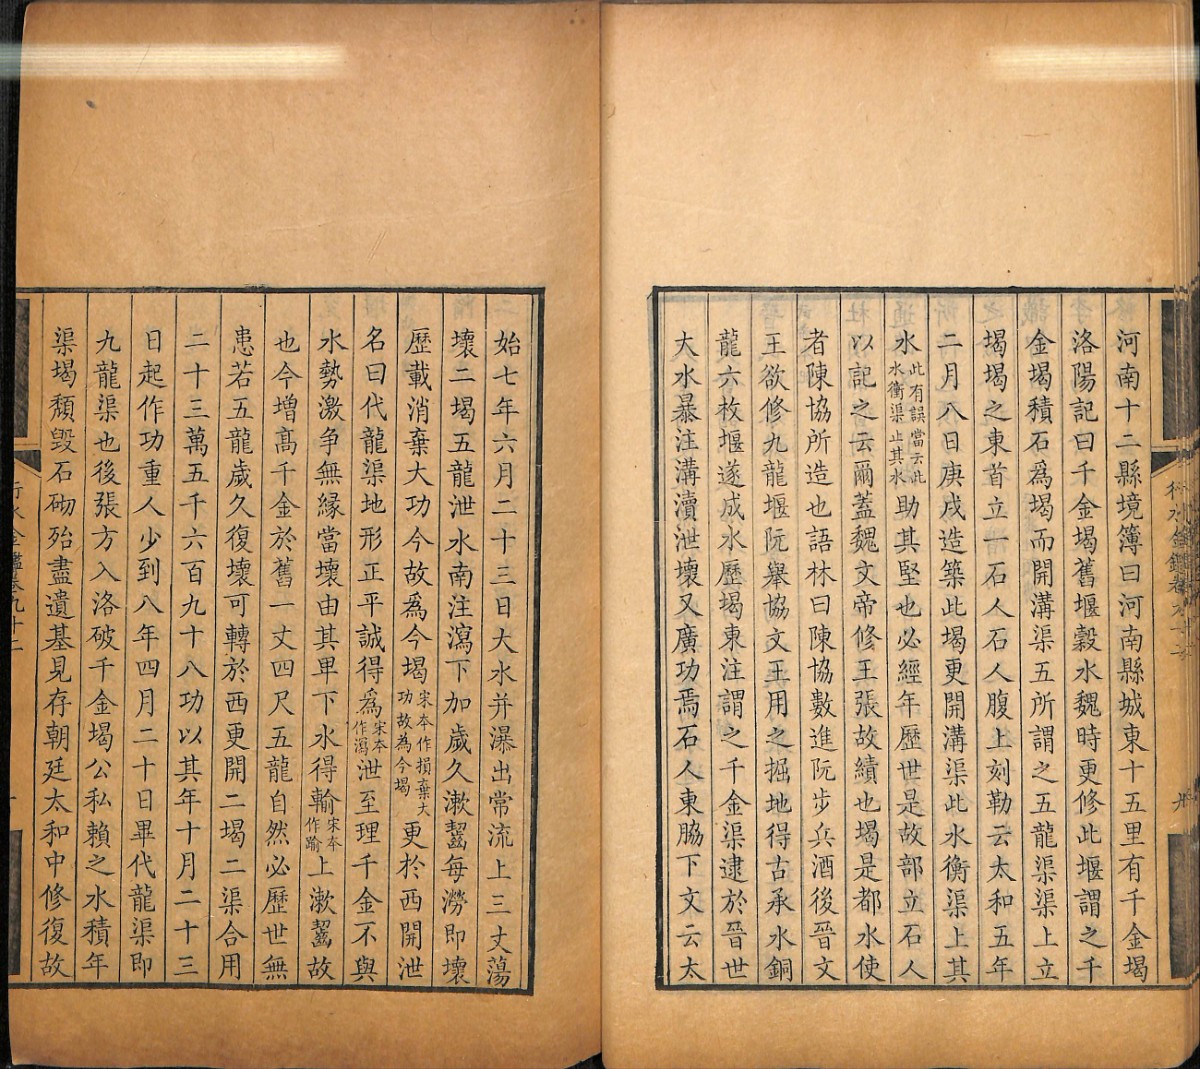 河南十二縣境簿曰河南縣城東十五里有千金堨
洛陽記曰千金堨舊堰穀水魏時更修此堰謂之千
金堨積石爲堨而開溝渠五所謂之五龍渠渠上立
堨堨之東首立一石人石人腹上刻勒云太和五年
二月八日庚戌造築此堨更開溝渠此水衡渠上其
水此有誤當云此水衡渠止其水助其堅也必經年歷世是故部立石人
以記之云爾蓋魏文帝修王張故績也堨是都水使
者陳協所造也語林曰陳協數進阮步兵酒後晉文
王欲修九龍堰阮舉協文王用之掘地得古承水銅
龍六枚堰遂成水歷堨東注謂之千金渠逮於晉世
大水暴注溝瀆泄壞又廣功焉石人東脇下文云太
始七年六月二十三日大水并瀑出常流上三丈蕩
壞二堨五龍泄水南注瀉下加歲久漱齧每澇即壞
歷載消棄大功今故爲今堨宋本作損棄大功故為今堨更於西開泄
名曰代龍渠地形正平誠得爲宋本作瀉泄至理千金不與
水勢激争無緣當壞由其卑下水得輸宋本作踰上漱齧故
也今增髙千金於舊一丈四尺五龍自然必歷世無
患若五龍歲久復壞可轉於西更開二堨二渠合用
二十三萬五千六百九十八功以其年十月二十三
日起作功重人少到八年四月二十日畢代龍渠即
九龍渠也後張方入洛破千金堨公私賴之水積年
渠堨頹毀石砌殆盡遺基見存朝廷太和中修復故
行水金鑑卷九十二